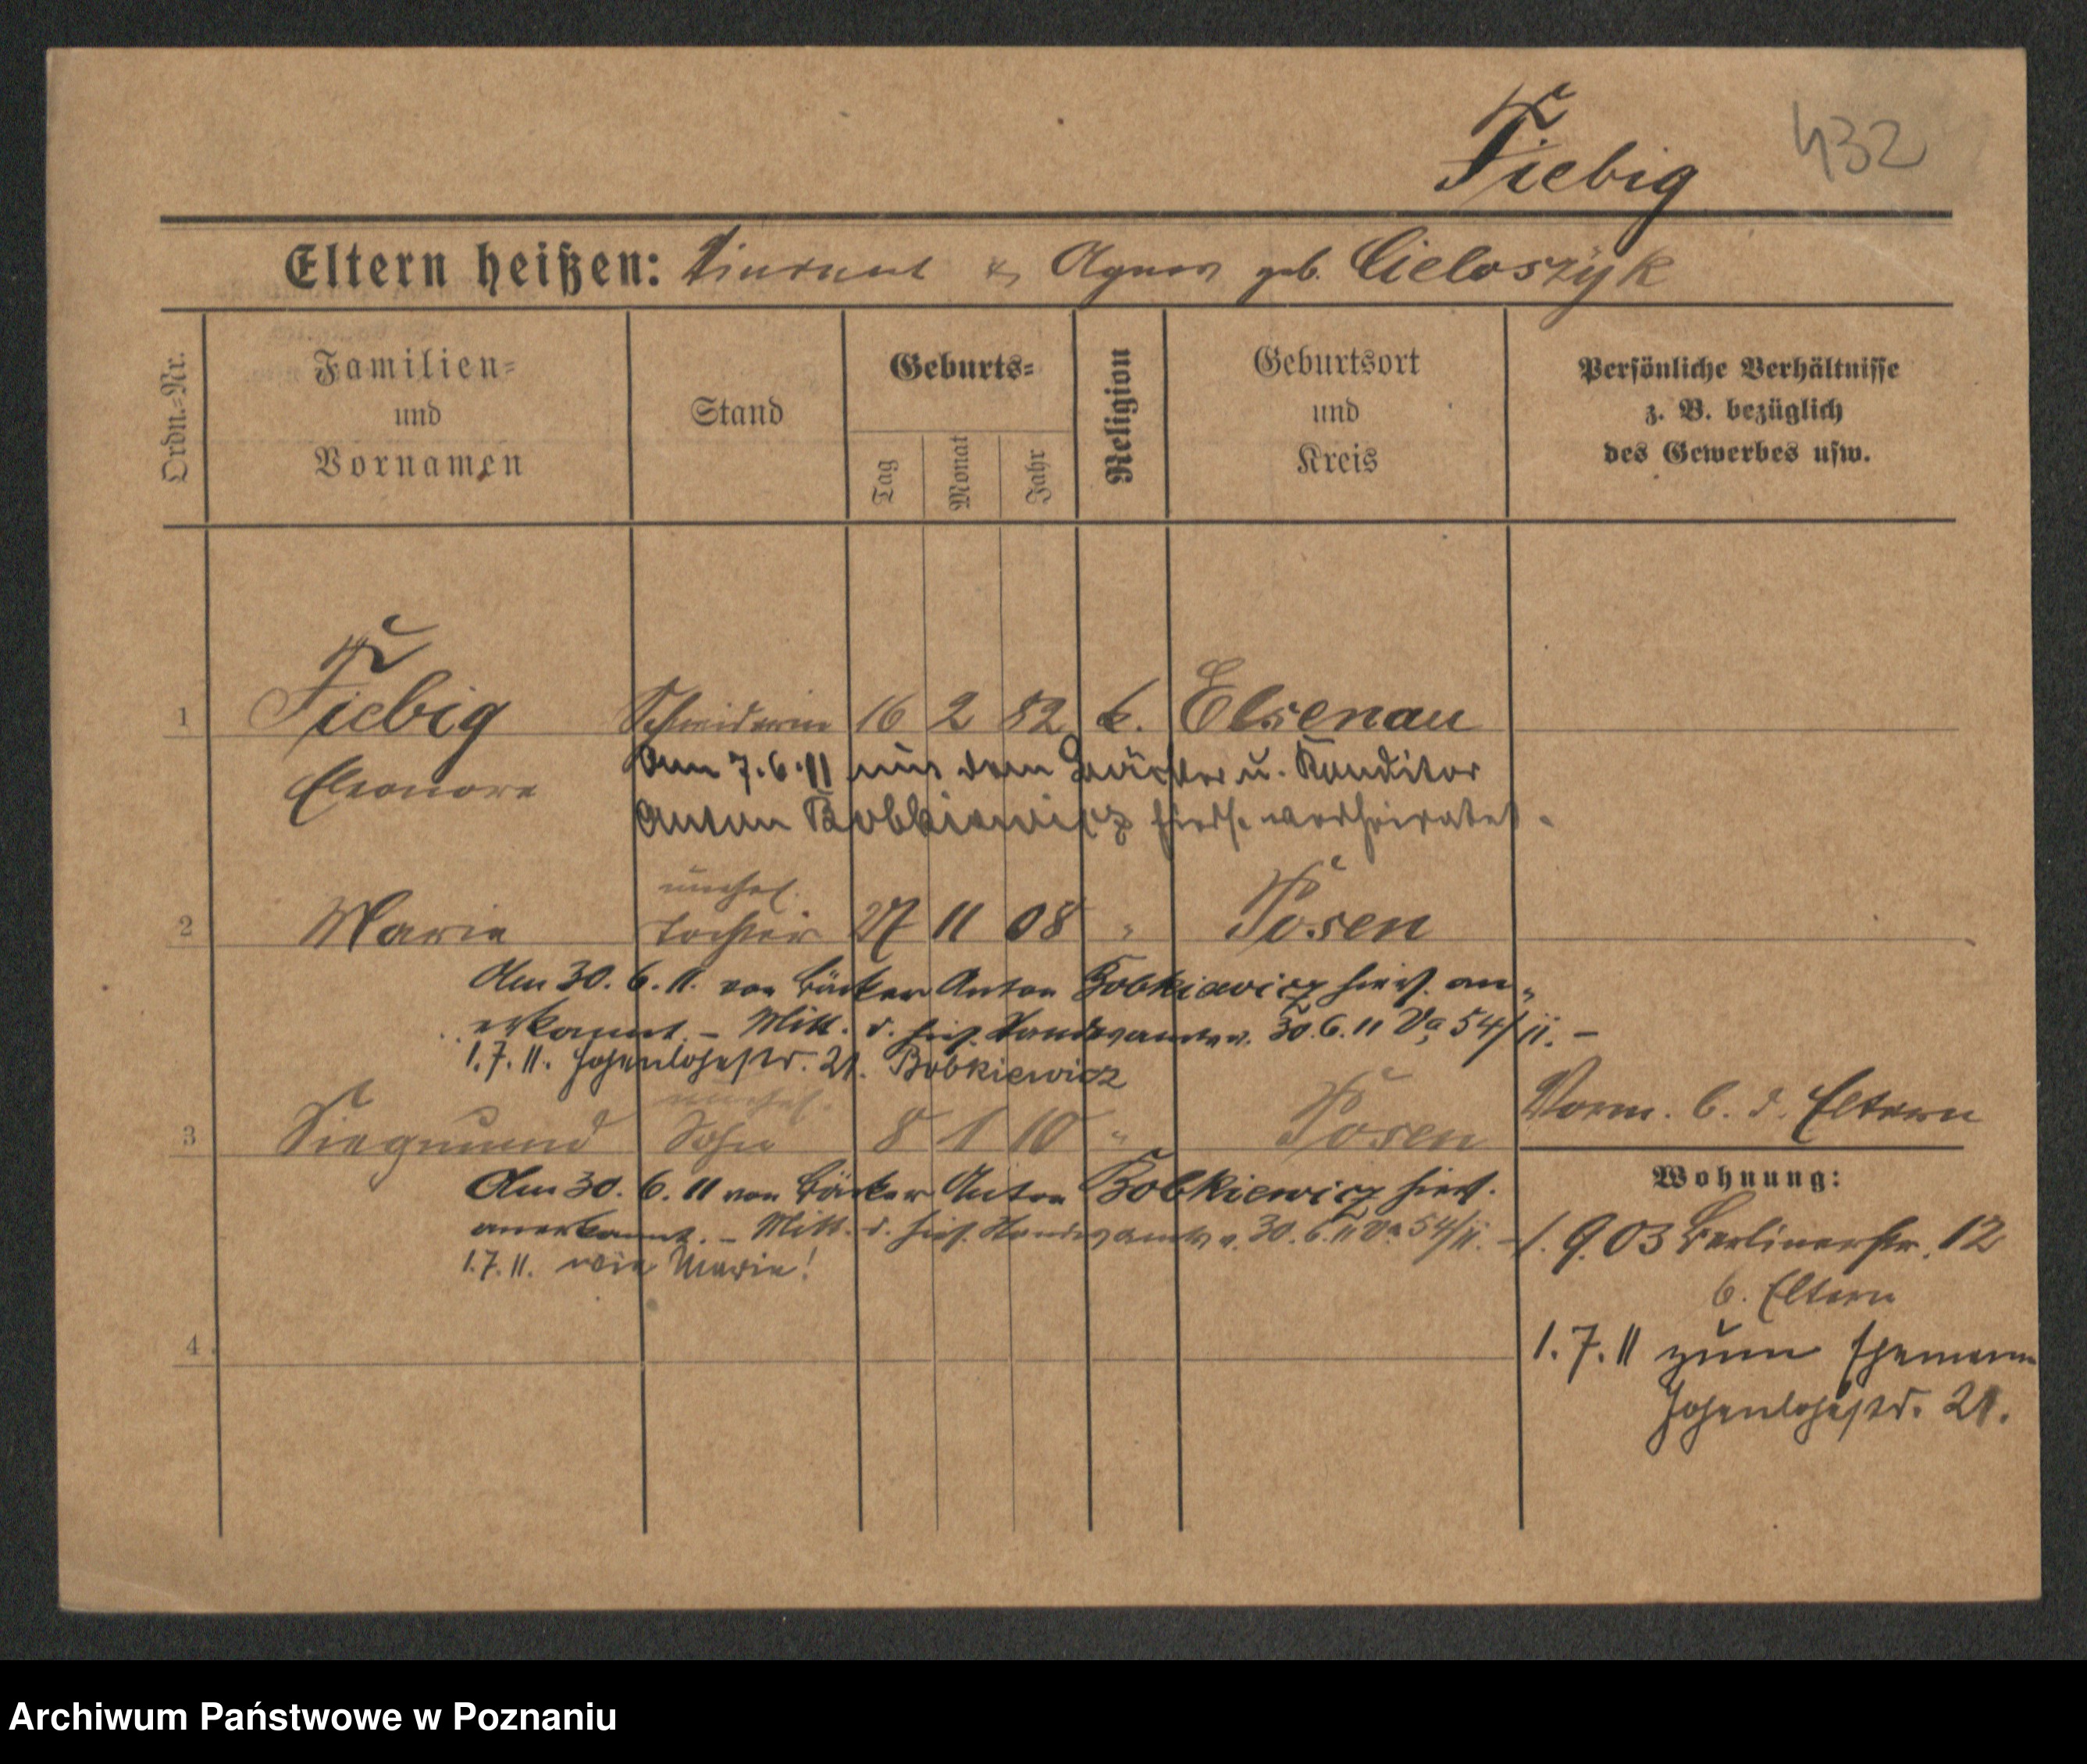 Fiebig
432
Eltern heißen: Vincent & Agnes geb. Cieloszyk
Ordn.-Nr.
Familien- und Vornamen
Stand
Geburts-
Tag
Monat
Jahr
Religion
Geburtsort und Kreis
Persönliche Verhältnisse z. B. bezüglich des Gewerbes usw.
1 Fiebig Schneiderin 16 2 82 k. Elsenau
Eleonore
Am 7.6.11 mit dem Bäcker u. Konditor
Anton Bobkiewicz hierselbst verheiratet.
unehel.
2 Marie Tochter 27 11 08 " Posen
Am 30.6.11. von Bäcker Anton Bobkiewicz hies. an-
erkannt. – Mitt. d. hies. Standesamtes v. 30.6.11 Va 54/11. –
1.7.11. Hohenlohestr. 21. Bobkiewicz
unehel.
3 Siegmund Sohn 8 1 10 " Posen
Am 30.6.11 von Bäcker Anton Bobkiewicz hies.
anerkannt. – Mitt. d. hies. Standesamtes v. 30.6.11 Va 54/11. –
1.7.11. wie Marie!
4
Vorm. b. d. Eltern
Wohnung:
1.9.03 Berlinerstr. 12
b. Eltern
1.7.11 zum Ehemann
Hohenlohestr. 21.
Archiwum Państwowe w Poznaniu